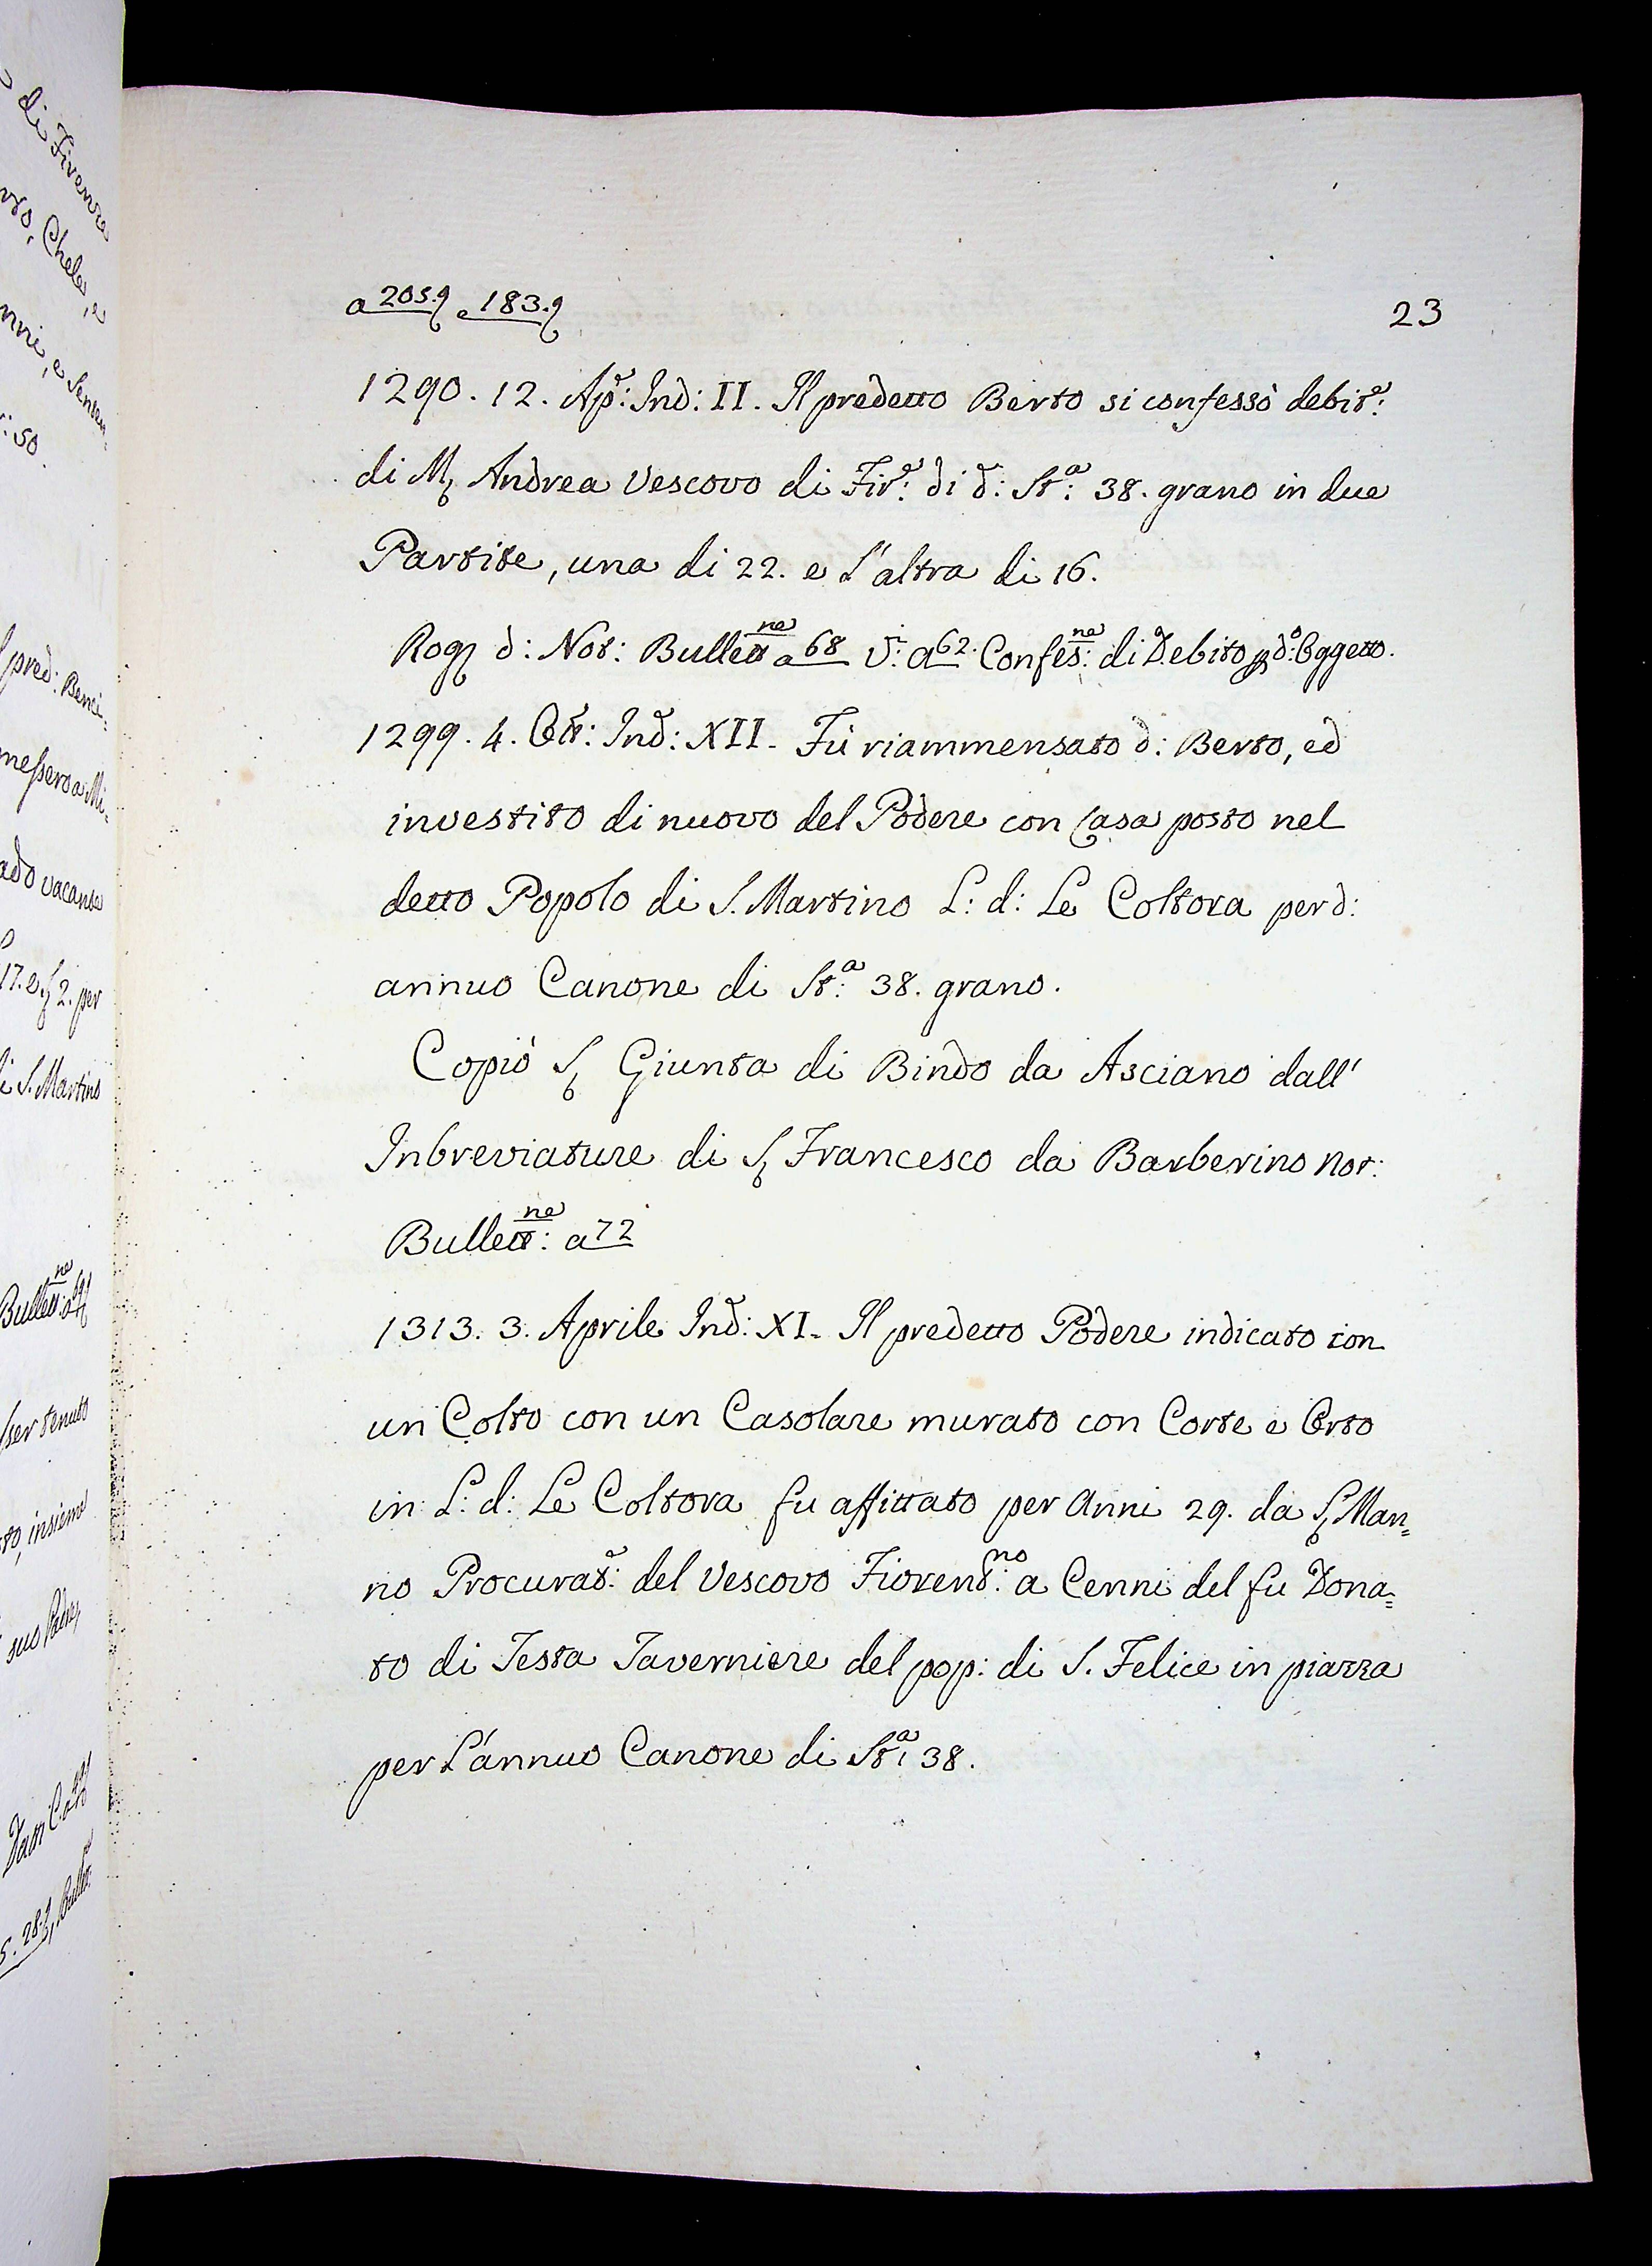 a 205. e 183.
23
1290. 12. Ap: Ind: II. Il predetto Berto si confessò debit:
di M Andrea Vescovo di Fir: di d: St:a 38. grano in due
Partite, una di 22. e l'altra di 16.
Rog d: Not: Bullettne a 68 V: a 62. Confes:ne di Debito p d:o Oggetto.
1299. 4. Ott: Ind: XII. Fù riammensato d: Berto, ed
investito di nuovo del Podere con Casa posto nel
detto Popolo di S. Martino L: d: Le Coltora per d:
annuo Canone di St:a 38. grano.
Copiò S Giunta di Bindo da Asciano dall'
Inbreviature di S Francesco da Barberino Not:
Bullett:ne a 72
1313. 3. Aprile Ind: XI. Il predetto Podere indicato con
un Colto con un Casolare murato con Corte e Orto
in L: d: Le Coltora fu affittato per Anni 29. da S Man=
no Procurat: del Vescovo Fiorent:no a Cenni del fu Dona=
to di Testa Taverniere del pop: di S. Felice in piazza
per l'annuo Canone di St:a 38.
di Firenze
Chele, e
e Senten
: 50.
pred: Benci:
messero a Mi:
ado vacante
17. e 2. per
di S. Martino
Bullett:ne a
ser tenuto
to, insieme
suo Padre,
28.